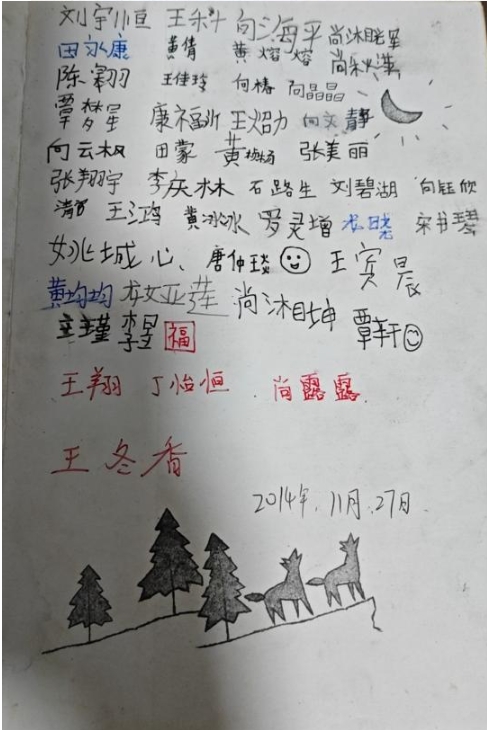 刘宇恒 王科 向海平 尚沐
田永康 黄倩 黄熔熔 尚秋
陈翱羽 王佳玲 向椿 向晶晶
覃梦星 康福 王焰力 向文静
向云权 田蒙 黄杨杨 张美丽
张翔宇 李庆林 石路生 刘碧湖 向钰欣
王鸿 黄冰冰 罗灵增 龙晓 宋书琴
姚城心 唐仲琰 王宾晨
黄均均 龙亚莲 尚沐坤
李星 福 覃轩
王翔 丁怡恒 尚露露
王冬香
2014年.11月.27日.